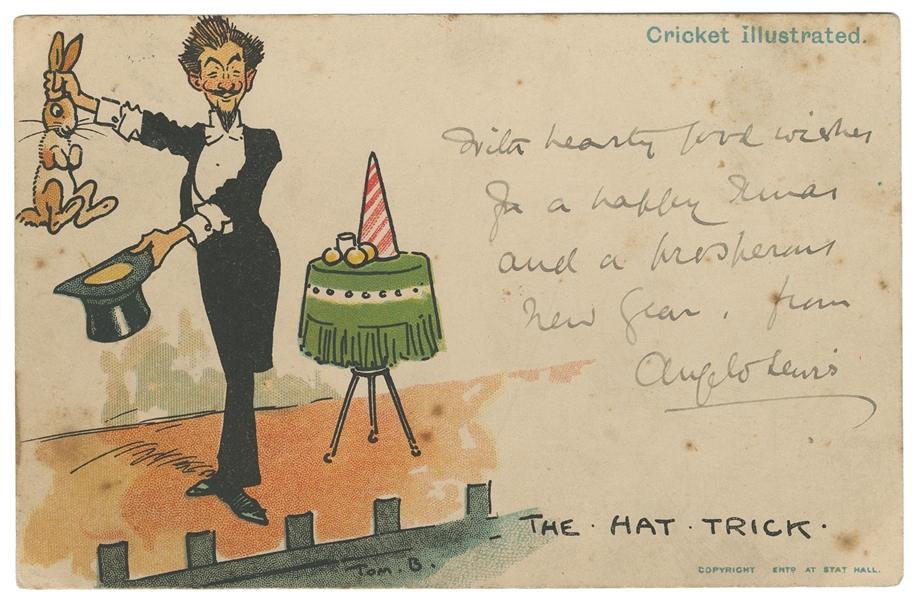 Cricket Illustrated.
With hearty good wishes
for a happy Xmas
and a prosperous
New Year, from
Angelo Lewis
THE · HAT · TRICK ·
Tom. B.
COPYRIGHT ENTD AT STAT HALL.